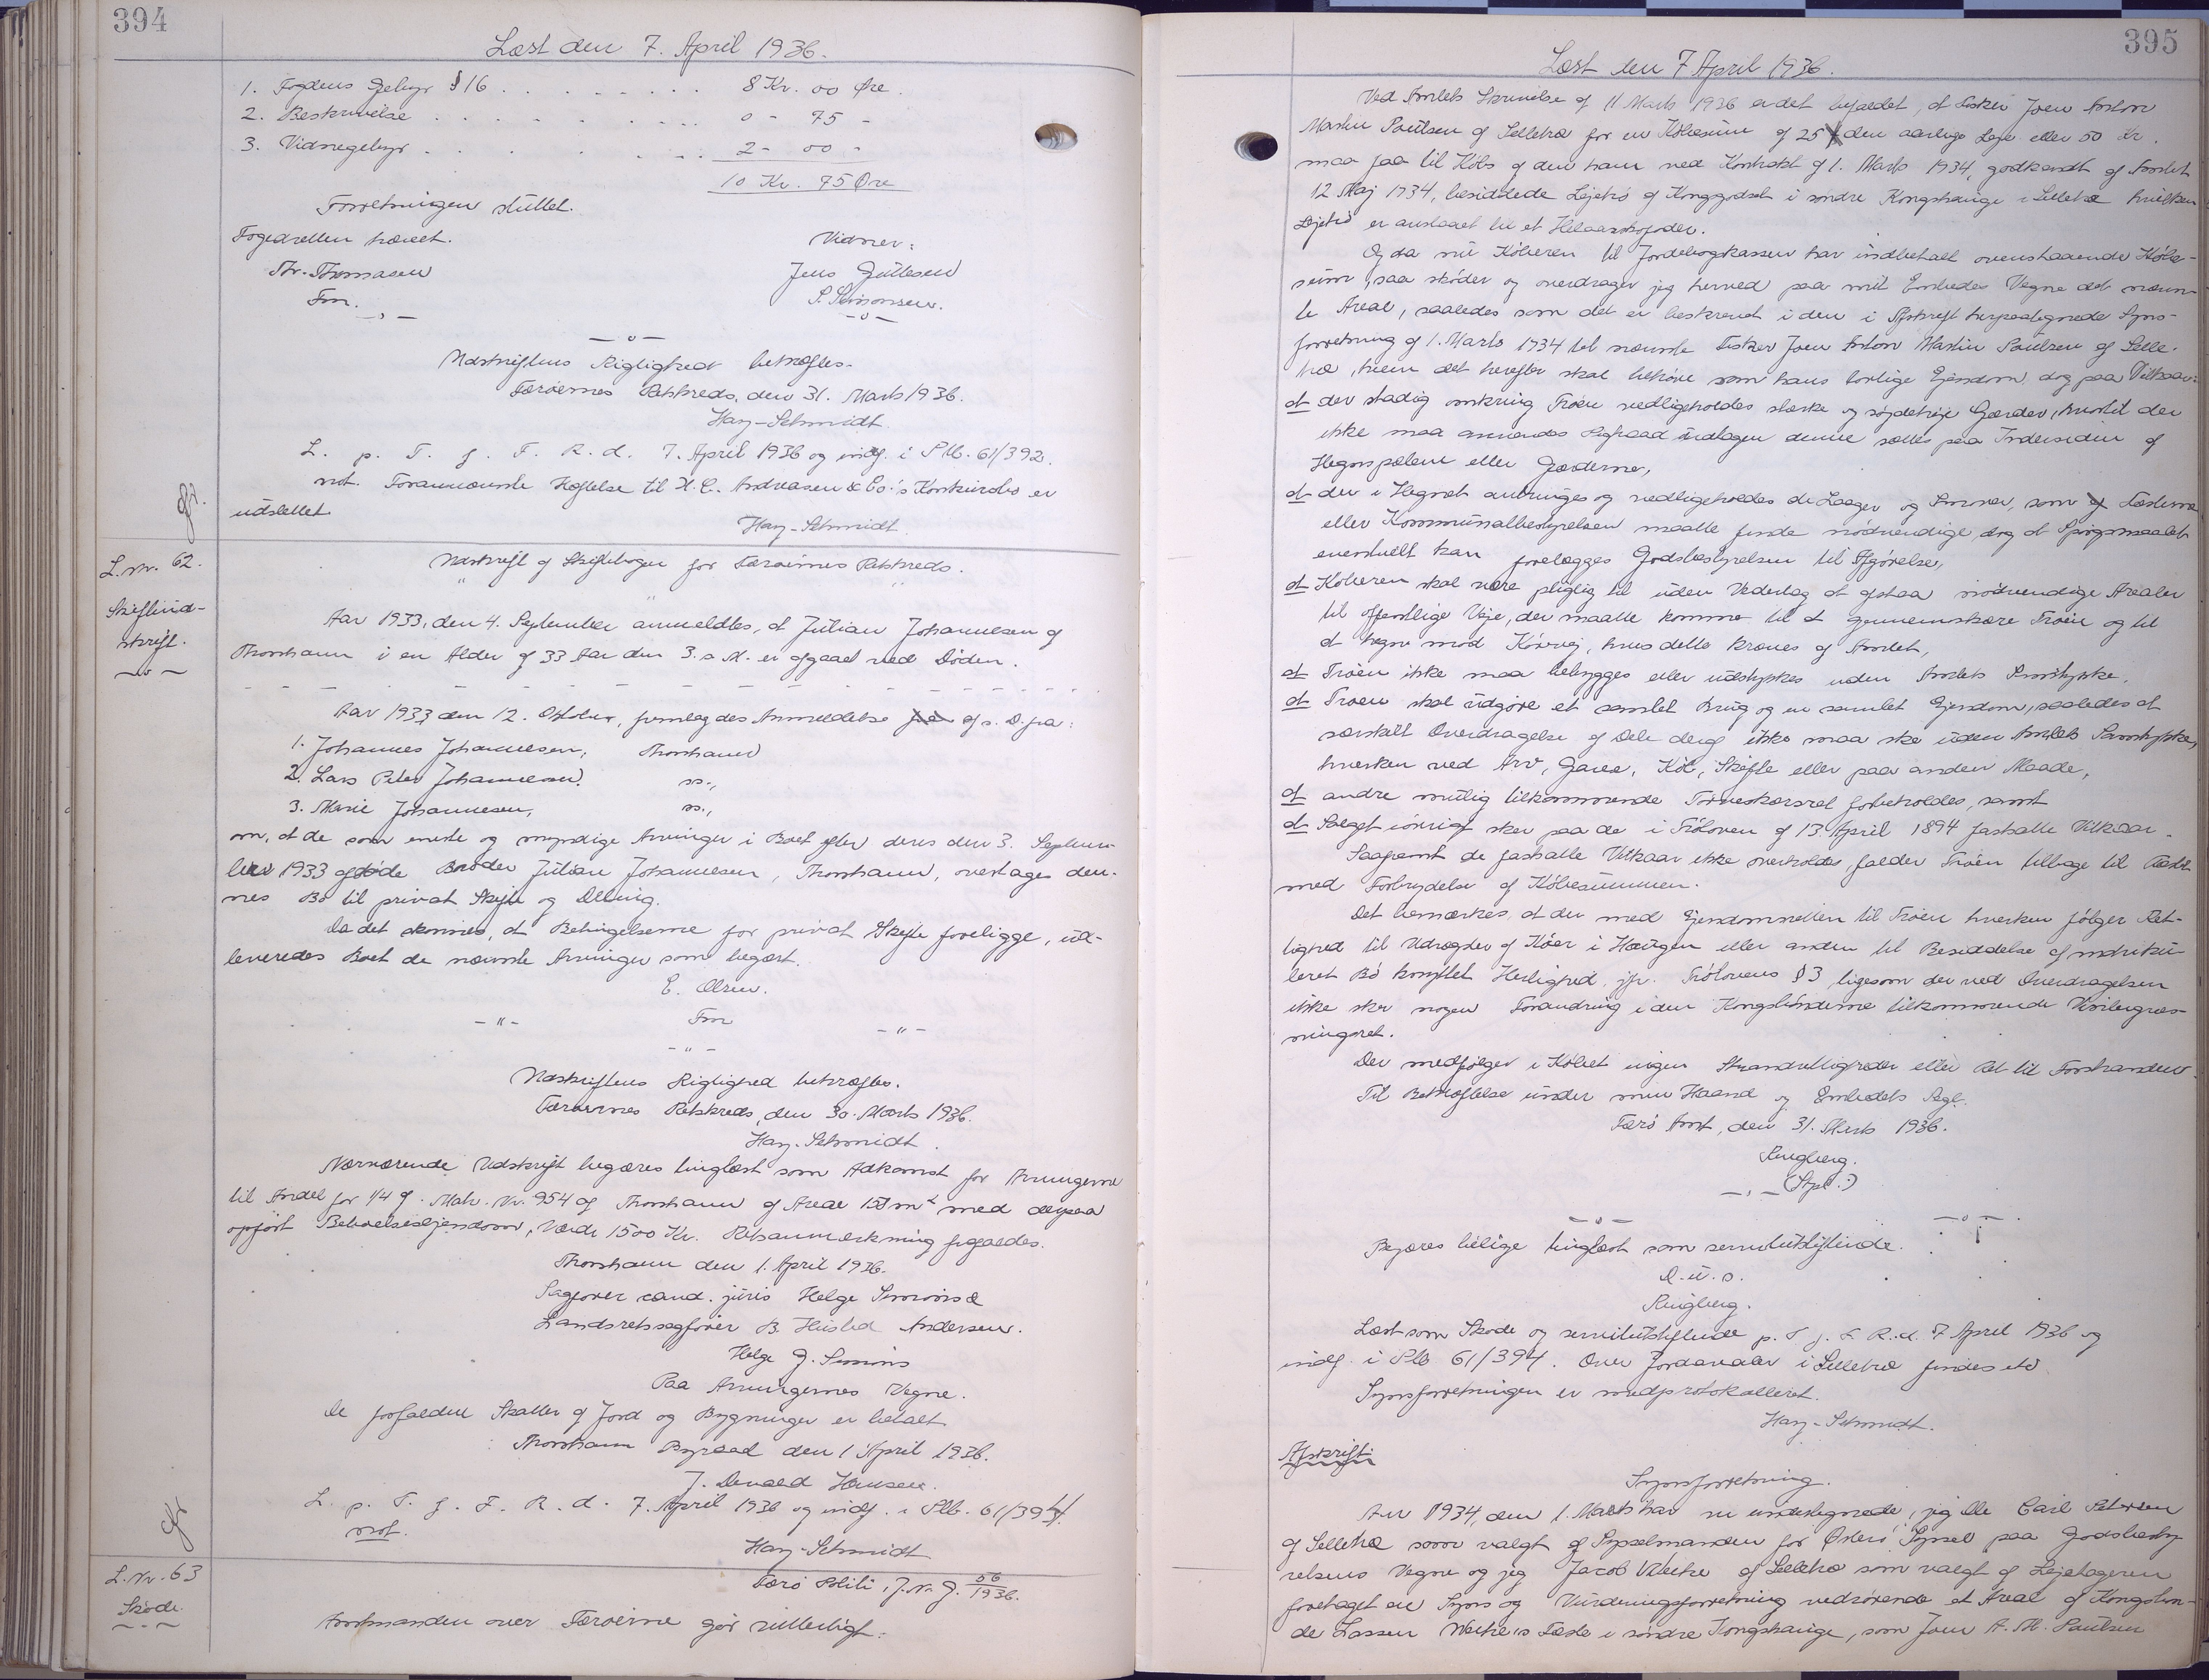 394
Læst den 7. April 1936.
1. Fogdens Gebyr § 16 . . . . . . . . 8 Kr. 00 Øre.
2. Beskrivelse . . . . . . . . . 0 - 75 -
3. Vidnegebyr . . . . . . . . . 2 - 00 -
10 Kr. 75 Øre
Forretningen sluttet.
Fogedretten hævet.
Vidner:
Thr. Thomasen
Jens Guttesen
Fm.
S. Simonsen.
Udskriftens Rigtighed bekræftes.
Færøernes Retskreds, den 31. Marts 1936.
Hay-Schmidt.
L. p. T. f. F. R. d. 7. April 1936 og indf. i Plb. 61/392.
not. Forannævnte Hæftelse til H. C. Andreasen & Co.'s Konkursbo er
udslettet
Hay-Schmidt.
L. Nr. 62.
Skifteud-
skrift.
Udskrift af Skiftebogen for Færøernes Retskreds.
Aar 1933, den 4. September anmeldtes, at Julian Johannesen af
Thorshavn i en Alder af 33 Aar den 3. s. M. er afgaaet ved Døden.
Aar 1933 den 12. Oktober, fremlagdes Anmeldelse fra af s. D. fra:
1. Johannes Johannesen, Thorshavn
2. Lars Peter Johannesen, ss.,
3. Marie Johannesen, ss.,
om, at de som eneste og myndige Arvinger i Boet efter deres den 3. Septem-
ber 1933 afdøde Broder Julian Johannesen, Thorshavn, overtager den-
nes Bo til privat Skifte og Deling.
Da det skønnes, at Betingelserne for privat Skifte foreligge, ud-
leveredes Boet de nævnte Arvinger som begært.
E. Olsen.
Fm
Udskriftens Rigtighed bekræftes.
Færøernes Retskreds, den 30. Marts 1936.
Hay-Schmidt.
Nærværende Udskrift begæres tinglæst som Adkomst for Arvingerne
til Andel for 1/4 af Matr. Nr. 954 af Thorshavn af Areal m² med derpaa
opført Beboelsesejendom, Værdi 1500 Kr. Retsanmærkning frafaldes.
Thorshavn den 1. April 1936.
Sagfører cand. juris Helge Simonis &
Landsretssagfører B. Husted Andersen.
Helge J. Simonis
Paa Arvingernes Vegne.
De forfaldne Skatter af Jord og Bygninger er betalt
Thorshavn Byraad den 1 April 1936.
J. Hansen.
L. p. T. f. F. R. d. 7. April 1936 og indf. i Plb. 61/394.
not.
Hay-Schmidt
L. Nr. 63
Skøde.
Færø J. Nr. J. 56/1936.
Amtmanden over Færøerne gør vitterligt:
395
Læst den 7 April 1936.
Ved Amtets Skrivelse af 11 Marts 1936 er det bifaldet, at Fisker Joen Anton
Martin Poulsen af Selletræ for en Købesum af 25 X den aarlige Leje eller 50 Kr.
maa faa til Købs af den ham ved Kontrakt af 1. Marts 1934, godkendt af Amtet
12 Maj 1934, besiddede Lejetrø af Kongsgodset i søndre Kongshauge i Selletræ hvilken
Lejetrø er anslaaet til et Helaarskofoder.
Og da nu Køberen til Jordebogskassen har indbetalt ovenstaaende Købe-
sum, saa skøder og overdrager jeg herved paa mit Embedes Vegne det nævn-
te Areal, saaledes som det er beskrevet i den i Afskrift herpaategnede Syns-
forretning af 1. Marts 1934 til nævnte Fisker Joen Anton Martin Poulsen af Selle-
træ, hvem det herefter skal tilhøre som hans lovlige Ejendom dog paa Vilkaar:
at der stadig omkring Trøen vedligeholdes stærke og søjdetrøje Gærder, hvortil der
ikke maa anvendes Pigtraad undtagen denne sættes paa Indersiden af
Hegnspælene eller Gærderne,
at der i Hegnet anbringes og vedligeholdes de Laager og som Fæsterne
eller Kommunalbestyrelsen maatte finde nødvendige dog at Spørgsmaalet
eventuelt kan forelægges Godsbestyrelsen til Afgørelse,
at Køberen skal være pligtig til uden Vederlag at afstaa nødvendige Arealer
til offentlige Veje, der maatte komme til at gennemskære Trøen og til
at hegne mod Kørevej, hvis dette kræves af Amtet,
at Trøen ikke maa bebygges eller udstykkes uden Amtets Samtykke,
at Trøen skal udgøre et samlet Brug og en samlet Ejendom, saaledes at
særskilt Overdragelse af Dele deraf ikke maa ske uden Amtets Samtykke,
hverken ved Arv, Gave, Køb, Skifte eller paa anden Maade,
at andre mulig tilkommende Tørveskærsret forbeholdes, samt
at Salget iøvrigt sker paa de i Trøloven af 13. April 1894 fastsatte Vilkaar.
Saafremt de fastsatte Vilkaar ikke overholdes, falder Trøen tilbage til Fæstet
med Fortrydelse af Købesummen.
Det bemærkes, at der med Ejendomsretten til Trøen hverken følger Ret-
tighed til Udregder af Køer i Haugen eller anden til Besiddelse af matriku-
leret Bø knyttet Herlighed, jfr. Trølovens § 3 ligesom der ved Overdragelsen
ikke sker nogen Forandring i den Kongsbønderne tilkommende Vintergræs-
ningsret.
Der medfølger i Købet ingen Strandrettigheder eller Ret til Forstranden.
Til Bekræftelse under min Haand og Embedets Segl.
Færø Amt, den 31. Marts 1936.
Ringberg.
(Stpl.)
Begæres tillige tinglæst som servitutstiftende.
D. u. s.
Ringberg.
Læst som Skøde og servitutstiftende p. T. f. F. R. d. 7 April 1936 og
indf. i Plb 61/394. Over Jordarealer i Selletræ findes etc
Synsforretningen er medprotokolleret.
Hay-Schmidt.
Afskrift:
Synsforretning.
Aar 1934, den 1. Marts har vi undertegnede, jeg Ole Carl Petersen
af Selletræ som valgt af Sysselmanden for Østerø Syssel paa Godsbesty-
relsens Vegne og jeg Jacob Weihe af Selletræ som valgt af Lejetageren
foretaget en Syns og Vurderingsforretning vedrørende et Areal af Kongsbon-
de Lassen Weihe's Fæste i søndre Kongshauge, som Joen A. M. Poulsen